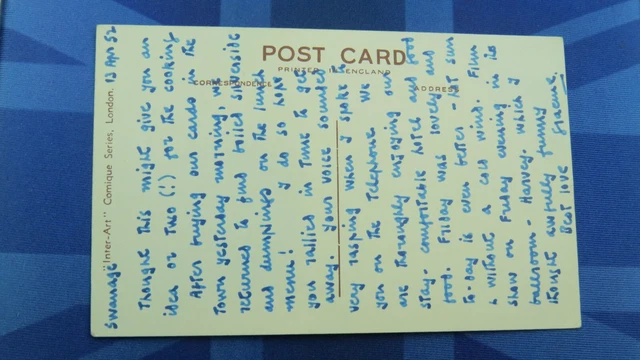 POST CARD
PRINTED IN ENGLAND
CORRESPONDENCE
ADDRESS
"Inter-Art" Comique Series, London.
Swanage 13 Apr 52
Thought this might give you an
idea or two (!) for the cooking
After buying our cards in the
Town yesterday morning, we
returned to find boiled silverside
and dumplings on the lunch
menu! I do so hope
you rallied in time to get
away. Your voice sounded
very rasping when I spoke to
you on the Telephone. We
are thoroughly enjoying our
stay - comfortable hotel and good
food. Friday was lovely and
To-day is even better - hot sun
& without a cold wind. Film
show on Friday evening in the
ballroom - Harvey. which I
thought awfully funny
Best love Graeme.